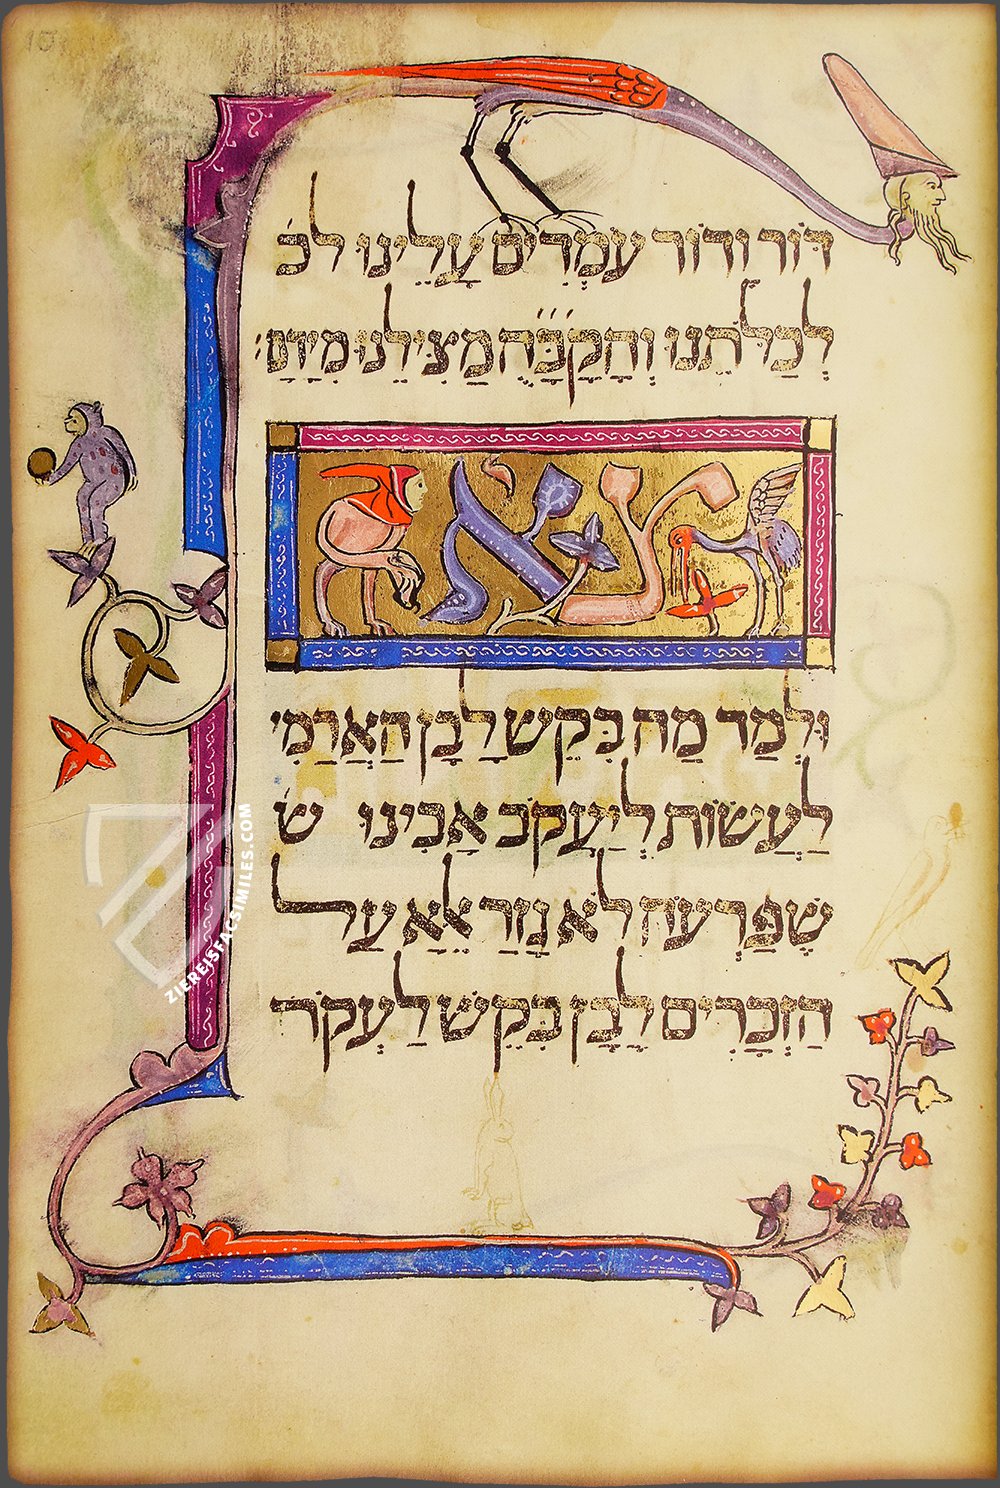 10
דּוֹר וָדוֹר עֹמְדִים עָלֵינוּ לכ
לְכַלֹּתֵנוּ וְהַקָּבָּ֞ה מַצִּילֵנוּ מִיָּדָם:
צא
וּלְמַד מַה בִּקֵשׁ לָבָן הַאֲרַמִי
לַעֲשׂוֹת לְיַעֲקֹב אָבִינוּ ש
שֶׁפַּרְעֹה לֹא גָזַר אֶלָּא עַל
הַזְּכָרִים לָבָן בִּקֵשׁ לַעְקֹר
ZIEREISFACSIMILES.COM